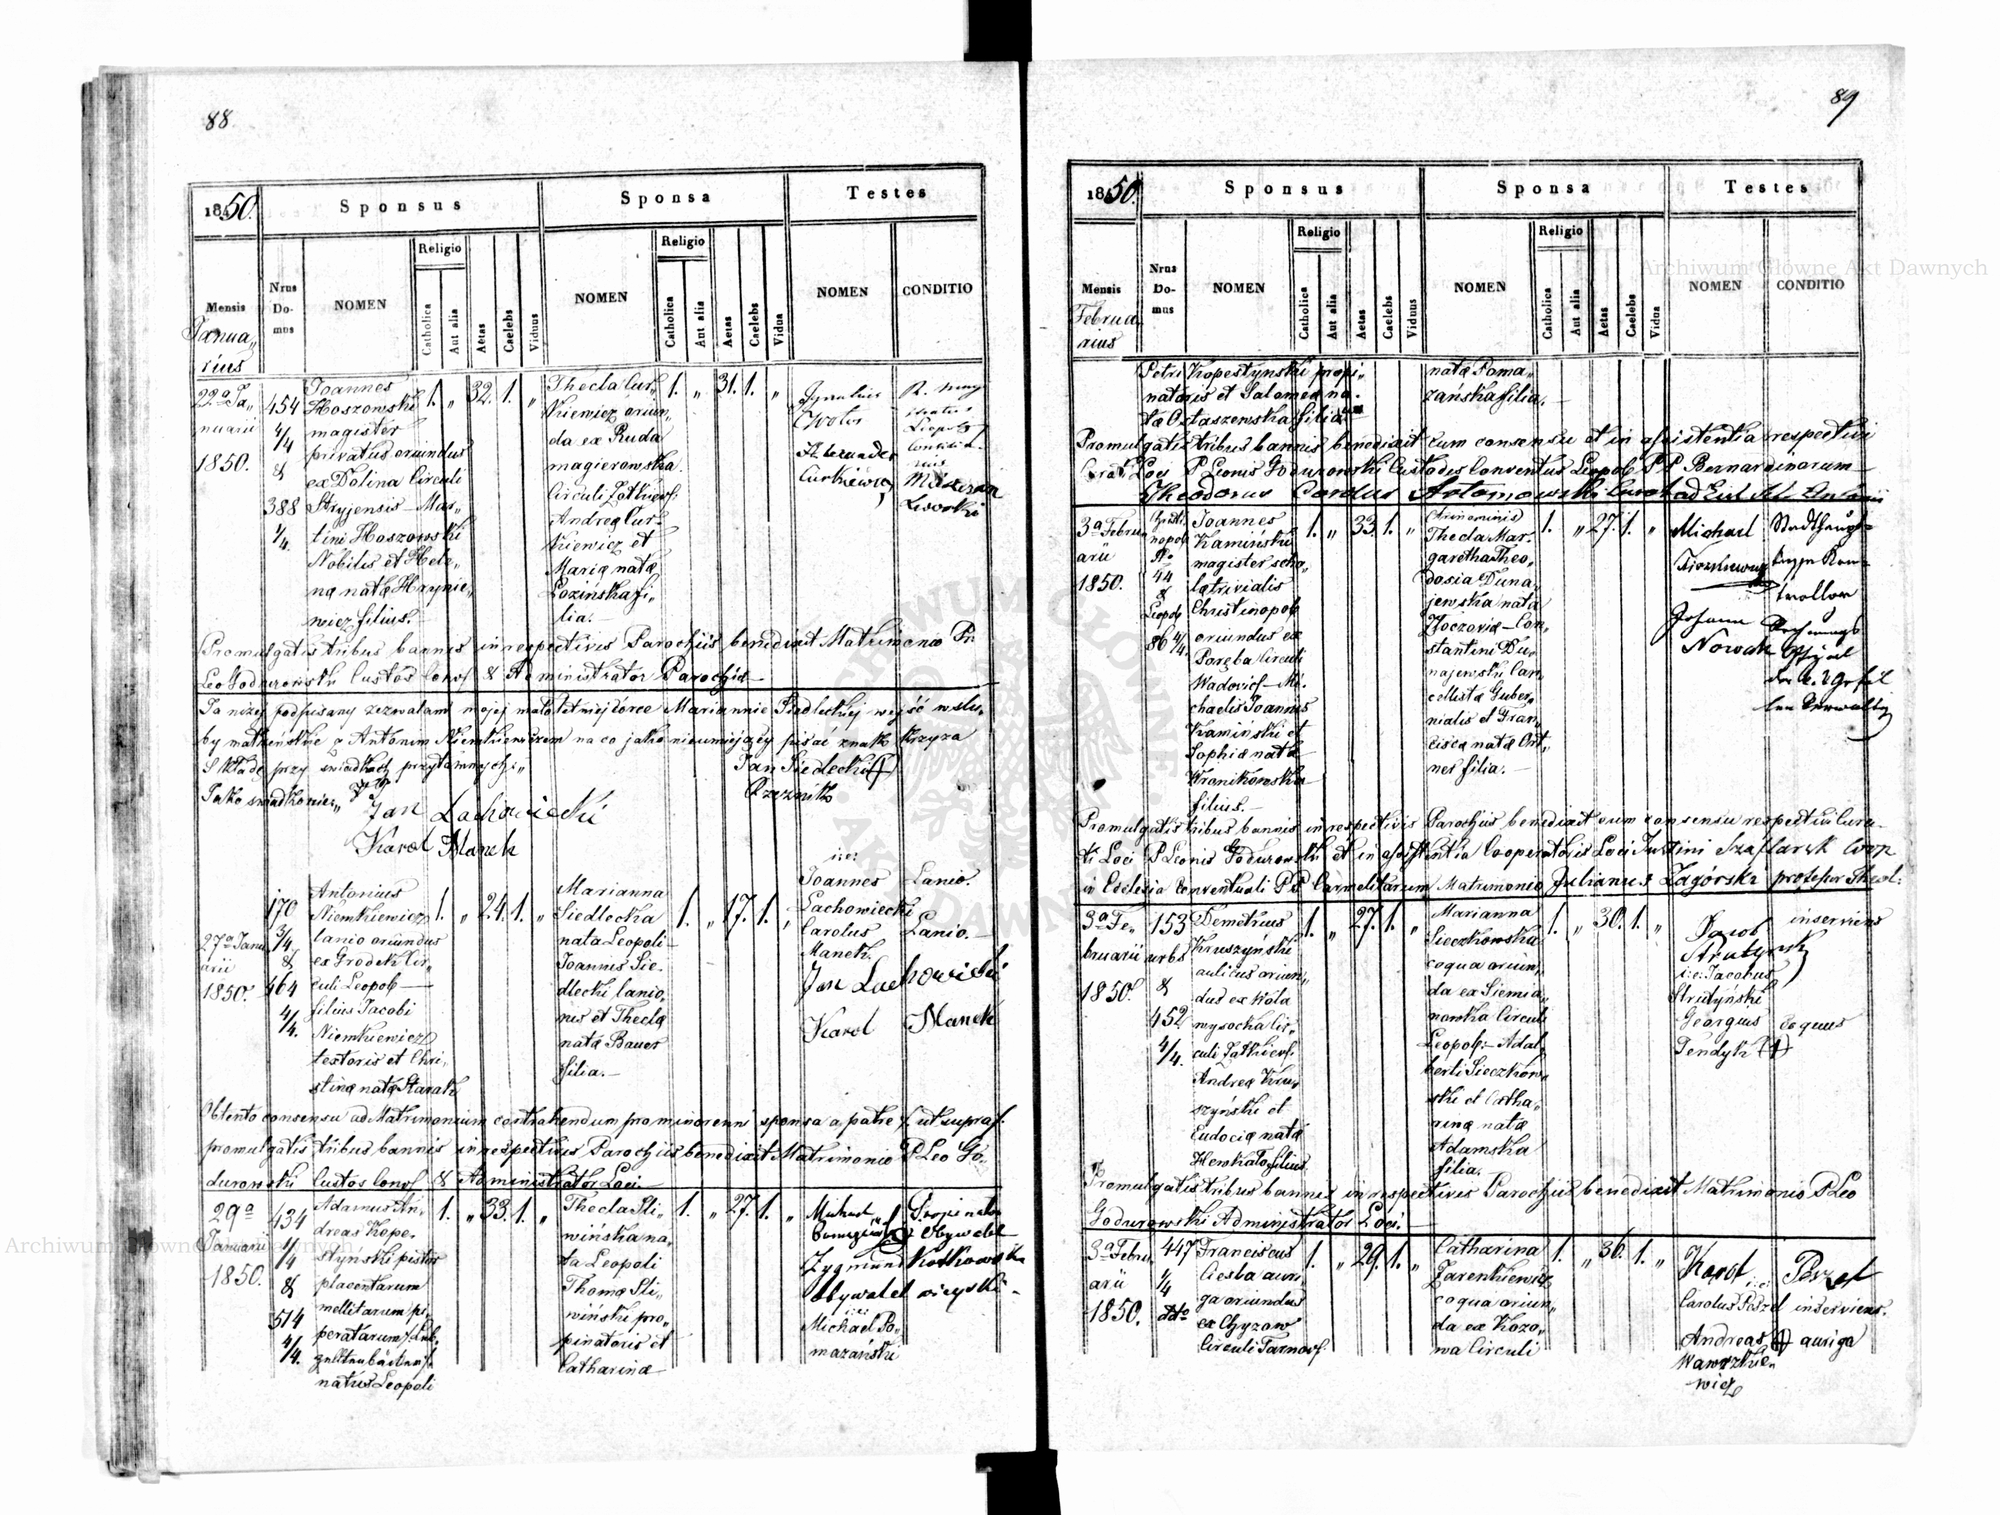 88
1850.
Sponsus
Sponsa
Testes
Mensis
Nrus Domus
NOMEN
Religio
Catholica
Aut alia
Aetas
Caelebs
Viduus
NOMEN
Religio
Catholica
Aut alia
Aetas
Caelebs
Vidua
NOMEN
CONDITIO
Janua„
rius
22a Ja„
nuarii
1850.
454
4/4
&
388
1/4.
Joannes
Hoszowski
magister
privatus oriundus
ex Dolina Circuli
Stryjensis – Mar„
tini Hoszowski
Nobilis et Hele„
na nata Hrynie„
wicz filius.–
1. „ 32. 1. „
Thecla Cur„
kiewicz oriun„
da ex Ruda
magierowska
Circuli Zolkiew:
Andrea Cur„
kiewicz et
Maria nata
Łozińska fi„
lia.–
1. „ 31. 1. „
Alexander
Curkiewicz
Promulgatis tribus bannis in respectivis Parochiis benedixit Matrimonio Pr.
Leo Godurowski Custos Conv & Administrator Parochiæ–
Ja niżej podpisany zezwalam mojej małoletniej córce Mariannie Siedleckiej wejść w ślu„
by małżeńskie z Antonim Niemkiewiczem na co jako nieumiejący pisać znak krzyża
Składe przy świadkach przytomnych:„
Jan Siedlecki (+)
Rzeznik
Jako świadkowie„
Jan Lachowiecki
Karol Manek
27a Janu
arii
1850.
170
3/4
&
464
4/4.
Antonius
Niemkiewicz
lanio oriundus
ex Grodek Cir„
culi Leopol –
filius Jacobi
Niemkiewicz
textoris et Chri„
stina nata Starak
1. „ 24. 1. „
Marianna
Siedlecka
nata Leopoli –
Joannis Sie„
dlecki lanio„
nis et Thecla
nata Bauer
filia.–
1. „ 17. 1. „
i:e:
Joannes Lanio.
Lachowiecki
Carolus Lanio.–
Manek.
Jan Lachowiecki
Karol Manek
Obtento consensu ad Matrimonium contrahendum pro minorenni sponsa a patre /: ut supra :/
promulgatis tribus bannis in respectivis Parochiis benedixit Matrimonio P Leo Go„
durowski Custos Conv & Administrator Loci–
29a
Januarii
1850.
434
1/4
&
514
4/4.
Adamus An„
dreas Kope„
styński pistor
placentarum
mellitarum pi„
peratarum
natus Leopoli
1. „ 33. 1. „
Thecla Sli„
wińska na„
ta Leopoli
Thoma Sli„
wiński pro„
pinatoris et
Catharina
1. „ 27. 1. „
Michał Propinator
Pomazański Obywatel
Zygmund Kotkowski
Obywatel wieyski –
i:e:
Michael Po„
mazański
89
1850.
Sponsus
Sponsa
Testes
Mensis
Nrus Domus
NOMEN
Religio
Catholica
Aut alia
Aetas
Caelebs
Viduus
NOMEN
Religio
Catholica
Aut alia
Aetas
Caelebs
Vidua
NOMEN
CONDITIO
Februa
rius
Petri Kopestyński propi„
natoris et Salomea na„
ta Ostaszewska filius
nata Poma„
zańska filia.–
Promulgatis tribus bannis benedixit cum consensu et in assistentia respectivi
Curati Loci P Leonis Godurowski Custodis Conventus Leopol P P Bernardinorum
Theodorus Carolus Antoniowski Curat ad Eccl. Sti Antonii
3a Febru
arii
1850.
Christi
nopol
No
44
&
Leopol
86 4/4
Joannes
Kamiński
magister scho„
la trivialis
Christinopol
oriundus ex
Poręba Circuli
Wadovic – Mi„
chaelis Joannis
Kamiński et
Sophia nata
Wronikowska
filius.–
1. „ 33. 1. „
Thecla Mar„
garetha Theo„
dosia Duna„
jewska nata
Złoczovia – Con„
stantini Du„
najewski Can„
cellista Guber„
nialis et Fran„
cisca nata Ort„
ner filia.–
1. „ 27. 1. „
Michael
Johann
Nowak
Promulgatis tribus bannis in respectivis Parochiis benedixit cum consensu respectivi Cura„
ti Loci P Leonis Godurowski et in assistentia Cooperatoris Loci Justini Szaflarsk Coop
in Ecclesia Conventuali P P Carmelitarum Matrimonio Julianus Zagórski professor Theol:
3a Fe„
bruarii
1850.
153
urbs
&
452
4/4.
Demetrius
Kruszyński
aulicus oriun„
dus ex Wola
wysocka Cir„
culi Zolkiew:
Andrea Kru„
szyński et
Eudocia nata
Hewkalo filius
1. „ 27. 1. „
Marianna
Sieczkowska
coqua oriun„
da ex Siemia„
nowka Circuli
Leopol:– Adal„
berti Sieczkow„
ski et Catha„
rina nata
Adamska
filia.
1. „ 30. 1. „
Jacob inserviens
Strutynsk
i:e: Jacobus
Strutyński
Georgius coquus
Dendyk (+)
Promulgatis tribus bannis in respectivis Parochiis benedixit Matrimonio P Leo
Godurowski Administrator Loci.–
3a Febru
arii
1850.
447
1/4
dtto
Franciscus
Ciesla auri„
ga oriundus
ex Chyzow
Circuli Tarnow:
1. „ 29. 1. „
Catharina
Zarenkiewicz
coqua oriun„
da ex Kozo„
wa Circuli
1. „ 36. 1. „
Karol Peszel
i:e:
Carolus Peszel inserviens.
Andreas (+) auriga
Wawrzkie„
wicz
Archiwum Główne Akt Dawnych
Archiwum Główne Akt Dawnych
ARCHIWUM GŁÓWNE AKT DAWNYCH